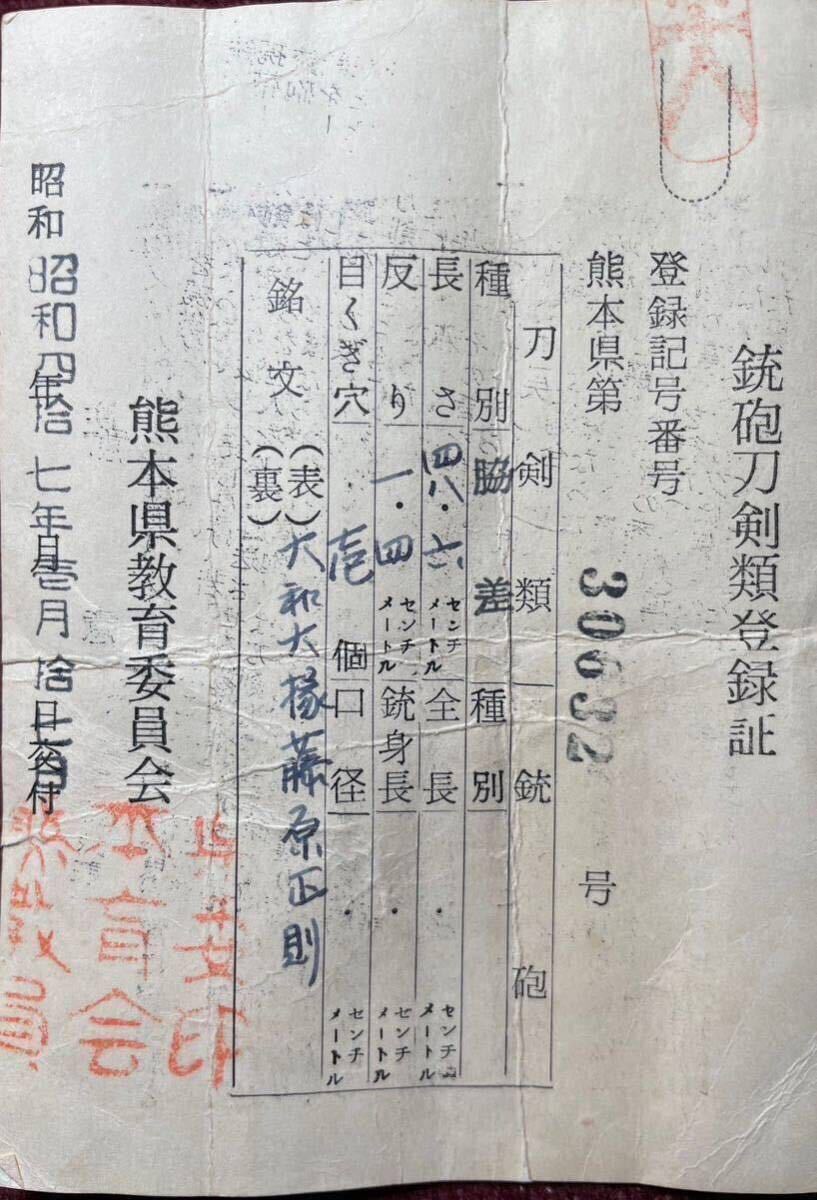 銃砲刀剣類登録証
登録記号番号
熊本県第 30632 号
刀剣類 銃砲
種別 脇差 種別
長さ 四八・六 センチメートル 全長 ・ センチメートル
反り 一・四 センチメートル 銃身長 ・ センチメートル
目くぎ穴 壱 個 口径 ・ センチメートル
銘文 (表) 大和大掾藤原正則
(裏)
熊本県教育委員会
昭和 年 月 日交付
昭和四拾七年壱月